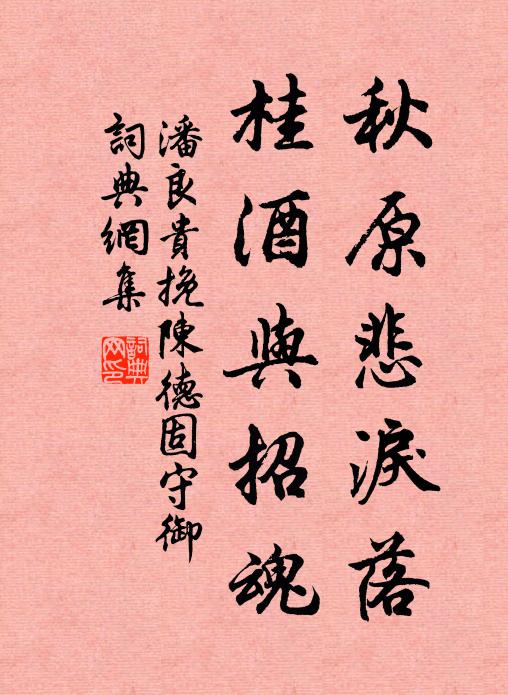 秋原悲淚落
桂酒與招魂
潘良貴挽陳德固守御
詞典網集
詞典
网印